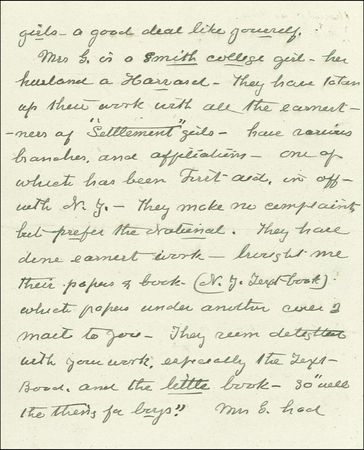 girls - a good deal like yourself.
Mrs G. is a Smith college girl - her
husband a Harvard - They have taken
up their work with all the earnest-
-ness of "Settlement" girls - have various
branches, and affiliations - one of
which has been First aid, in off-
with N. Y. - They make no complaint
but prefer the National. They have
done earnest work - brought me
their papers & book - (N. Y. Text-book)
which papers under another cover I
mail to you - They seem
with your work, especially the Text-
Book, and the little book - so "well
the thing for boys." Mrs G. had